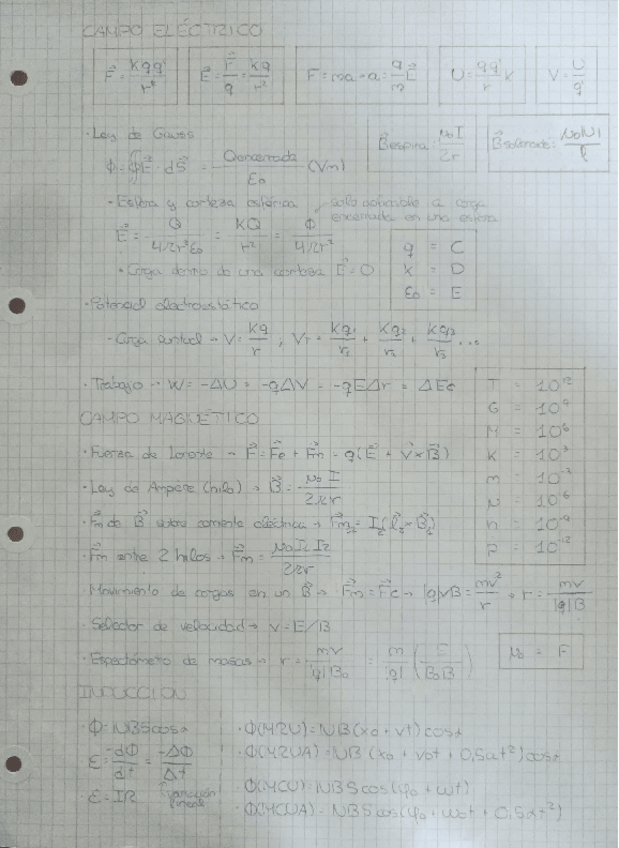 CAMPO ELÉCTRICO
F⃗ = kqq'/r²   E⃗ = F⃗/q = kq/r²   F = ma → a = q/m E⃗   U = qq'/r k   V = U/q
· Ley de Gauss   B⃗ espira = μ₀I/2r   B⃗ solenoide = μ₀NI/l
Φ = ∮E⃗ · dS⃗ = Qencerrada/ε₀ (Vm)
· Esfera y corteza esférica, solo aplicable a carga encerrada en una esfera
E⃗ = Q/4πr²ε₀ = KQ/r² = Φ/4πr²
· Carga dentro de una corteza E⃗ = 0
q = C
k = D
ε₀ = E
· Potencial electrostático
- Carga puntual → V = kq/r ; VT = kq₁/r₁ + kq₂/r₂ + kq₃/r₃ ...
· Trabajo → W = -ΔU = -qΔV = -qEΔr = ΔEc
T = 10¹²
G = 10⁹
M = 10⁶
K = 10³
m = 10⁻³
μ = 10⁻⁶
n = 10⁻⁹
p = 10⁻¹²
CAMPO MAGNÉTICO
· Fuerza de Lorentz → F⃗ = F⃗e + F⃗m = q(E⃗ + v⃗×B⃗)
· Ley de Ampère (hilo) → B⃗ = μ₀I/2πr
· F⃗m de B⃗ sobre corriente eléctrica → F⃗m₂ = I₂(l⃗₂×B⃗₁)
· F⃗m entre 2 hilos → F⃗m = μ₀I₁I₂/2πr
· Movimiento de cargas en un B⃗ → F⃗m = F⃗c → |q|vB = mv²/r → r = mv/|q|B
· Selector de velocidad → v = E/B
· Espectómetro de masas → r = mv/|q|B₀ = m/|q| (E/B₀B)
μ₀ = F
INDUCCIÓN
· Φ = NBScosα   · Φ(MRU) = NB(x₀ + vt)cosα
ε = -dΦ/dt = -ΔΦ/Δt   · Φ(MRUA) = NB(x₀ + v₀t + 0,5at²)cosα
variación
· ε = IR   · Φ(MCU) = NBScos(φ₀ + ωt)
· Φ(MCUA) = NBScos(φ₀ + ω₀t + 0,5αt²)